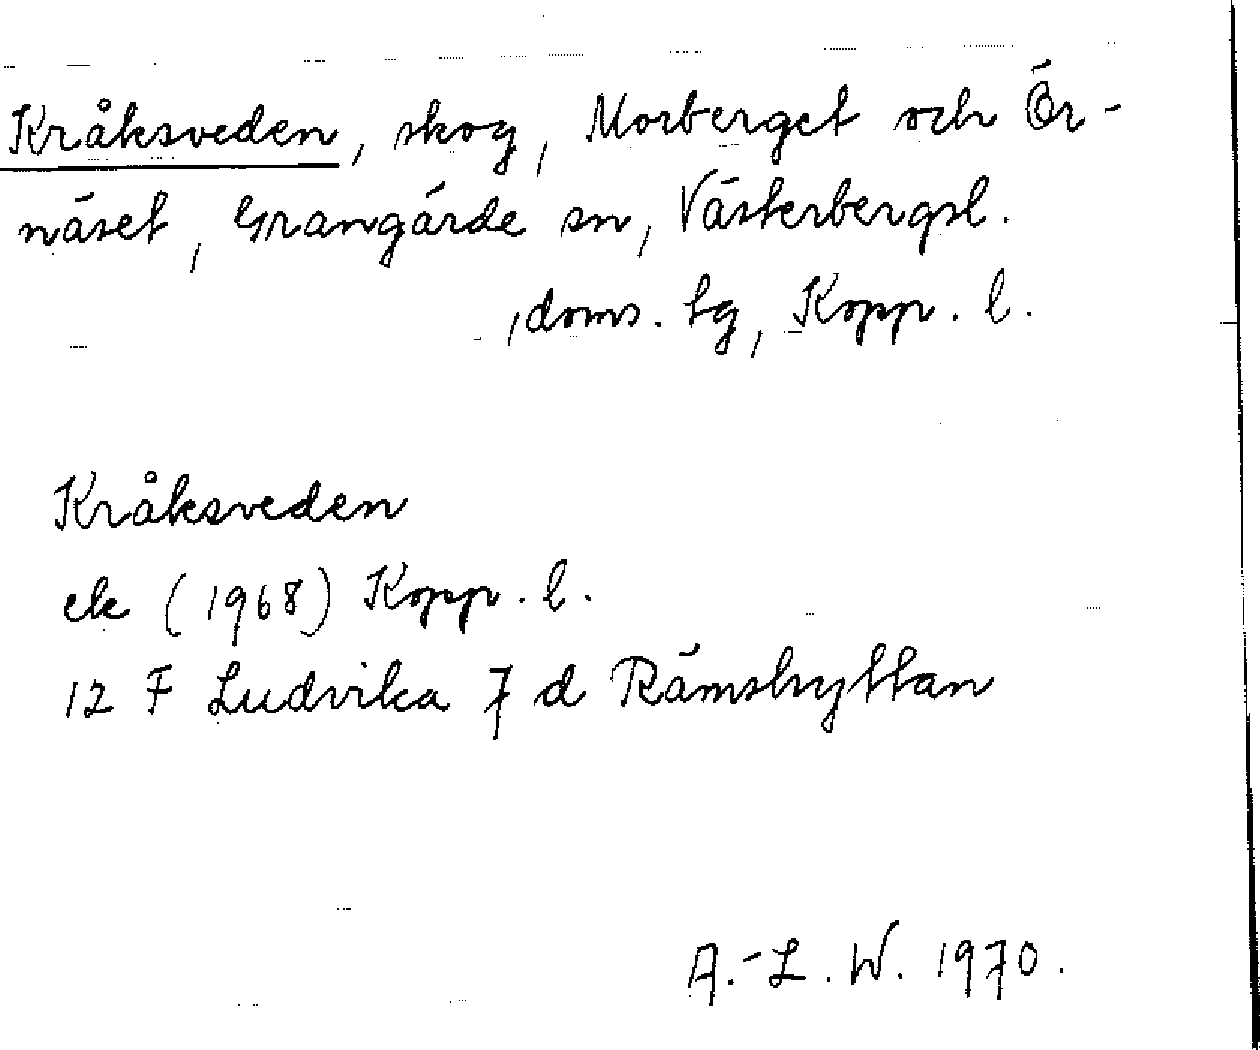 Kråksveden, skog, Morberget och Ör-
näset, Grangärde sn, Västerbergsl.
, doms. tg, Kopp. l.
Kråksveden
ek (1968) Kopp. l.
12 F Ludvika 7 d Rämshyttan
A.-L. W. 1970.